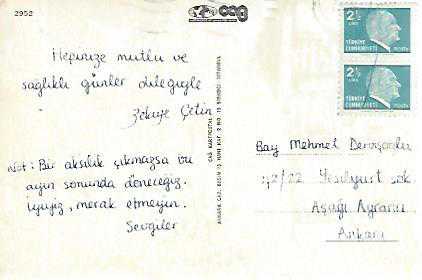 2952
Hepinize mutlu ve
sağlıklı günler dileğiyle
Zekiye Çetin
Not: Bir aksilik çıkmazsa bu
ayın sonunda döneceğiz.
İyiyiz, merak etmeyin.
Sevgiler
2½
LİRA
TÜRKİYE
CUMHURİYETİ
POSTA
2½
LİRA
TÜRKİYE
CUMHURİYETİ
POSTA
Bay Mehmet
42/22 Yeşilyurt sok
Aşağı Ayrancı
Ankara